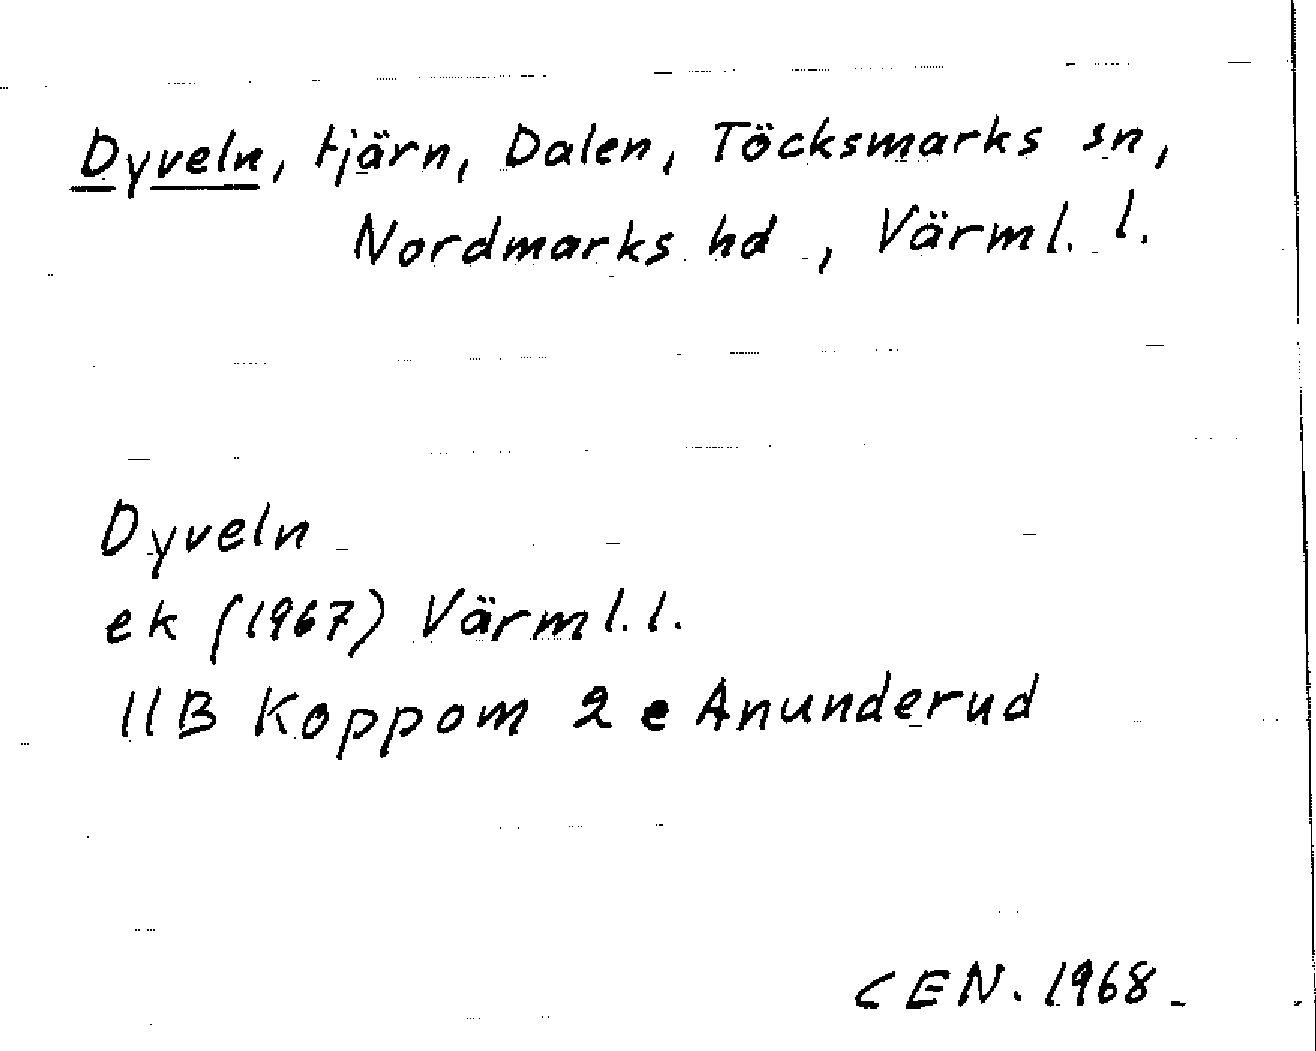 Dyveln, tjärn, Dalen, Töcksmarks sn,
Nordmarks hd, Värml. l.
Dyveln
ek (1967) Värml. l.
11B Koppom 2 e Anunderud
CEN. 1968